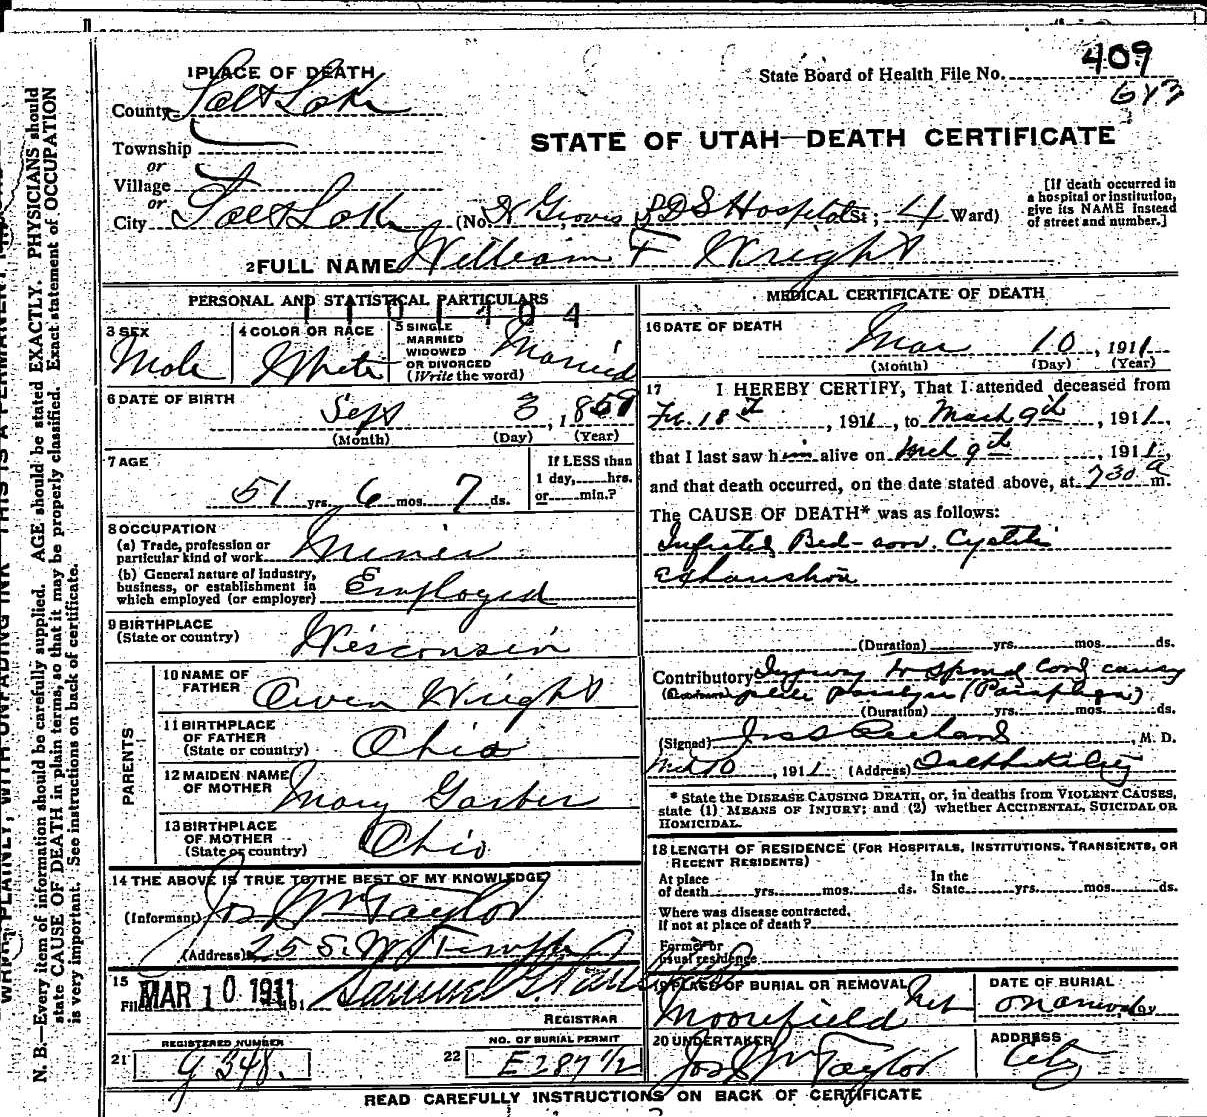 409
State Board of Health File No.
1 PLACE OF DEATH
County Salt Lake
STATE OF UTAH—DEATH CERTIFICATE
Township
or
Village
or
City Salt Lake (No. Groves L D S Hospital St ; 4 Ward)
[If death occurred in a hospital or institution, give its NAME instead of street and number.]
2 FULL NAME William F Wright
PERSONAL AND STATISTICAL PARTICULARS
3 SEX
Male
4 COLOR OR RACE
White
5 SINGLE
MARRIED
WIDOWED
OR DIVORCED
(Write the word)
Married
6 DATE OF BIRTH
Sept 3, 1859
(Month) (Day) (Year)
7 AGE
51 yrs. 6 mos. 7 ds.
If LESS than
1 day, hrs.
or min.?
8 OCCUPATION
(a) Trade, profession or
particular kind of work Miner
(b) General nature of industry,
business, or establishment in
which employed (or employer) Employed
9 BIRTHPLACE
(State or country) Wisconsin
PARENTS
10 NAME OF
FATHER Owen Wright
11 BIRTHPLACE
OF FATHER
(State or country) Ohio
12 MAIDEN NAME
OF MOTHER Mary Garber
13 BIRTHPLACE
OF MOTHER
(State or country) Ohio
14 THE ABOVE IS TRUE TO THE BEST OF MY KNOWLEDGE
(Informant) Jos Wm Taylor
(Address) 25 S. W. Temple
15
Filed MAR 10 1911 Samuel G.
REGISTRAR
21 REGISTERED NUMBER
G 348.
22 NO. OF BURIAL PERMIT
E287 1/2
MEDICAL CERTIFICATE OF DEATH
16 DATE OF DEATH
Mar 10, 1911
(Month) (Day) (Year)
17 I HEREBY CERTIFY, That I attended deceased from
Feb. 18th, 1911, to March 9th, 1911,
that I last saw him alive on Mch 9th, 1911,
and that death occurred, on the date stated above, at 730 a m.
The CAUSE OF DEATH* was as follows:
Infected Bed-sore. Cystitis
Exhaustion
(Duration) yrs. mos. ds.
Contributory Injury to Spinal Cord causing
paralysis (Paraplegia)
(Duration) yrs. mos. ds.
(Signed) M. D.
Mch 10, 1911 (Address) Salt Lake City
* State the DISEASE CAUSING DEATH, or, in deaths from VIOLENT CAUSES,
state (1) MEANS OF INJURY; and (2) whether ACCIDENTAL, SUICIDAL OR
HOMICIDAL.
18 LENGTH OF RESIDENCE (FOR HOSPITALS, INSTITUTIONS, TRANSIENTS, OR
RECENT RESIDENTS)
At place
of death yrs. mos. ds. In the State yrs. mos. ds.
Where was disease contracted,
if not at place of death?
Former or
usual residence
19 PLACE OF BURIAL OR REMOVAL
Moorefield Neb
DATE OF BURIAL
20 UNDERTAKER
Jos Wm Taylor
ADDRESS
City
READ CAREFULLY INSTRUCTIONS ON BACK OF CERTIFICATE
WRITE PLAINLY, WITH UNFADING INK—THIS IS A PERMANENT
N. B.—Every item of information should be carefully supplied. AGE should be stated EXACTLY. PHYSICIANS should
state CAUSE OF DEATH in plain terms, so that it may be properly classified. Exact statement of OCCUPATION
is very important. See instructions on back of certificate.